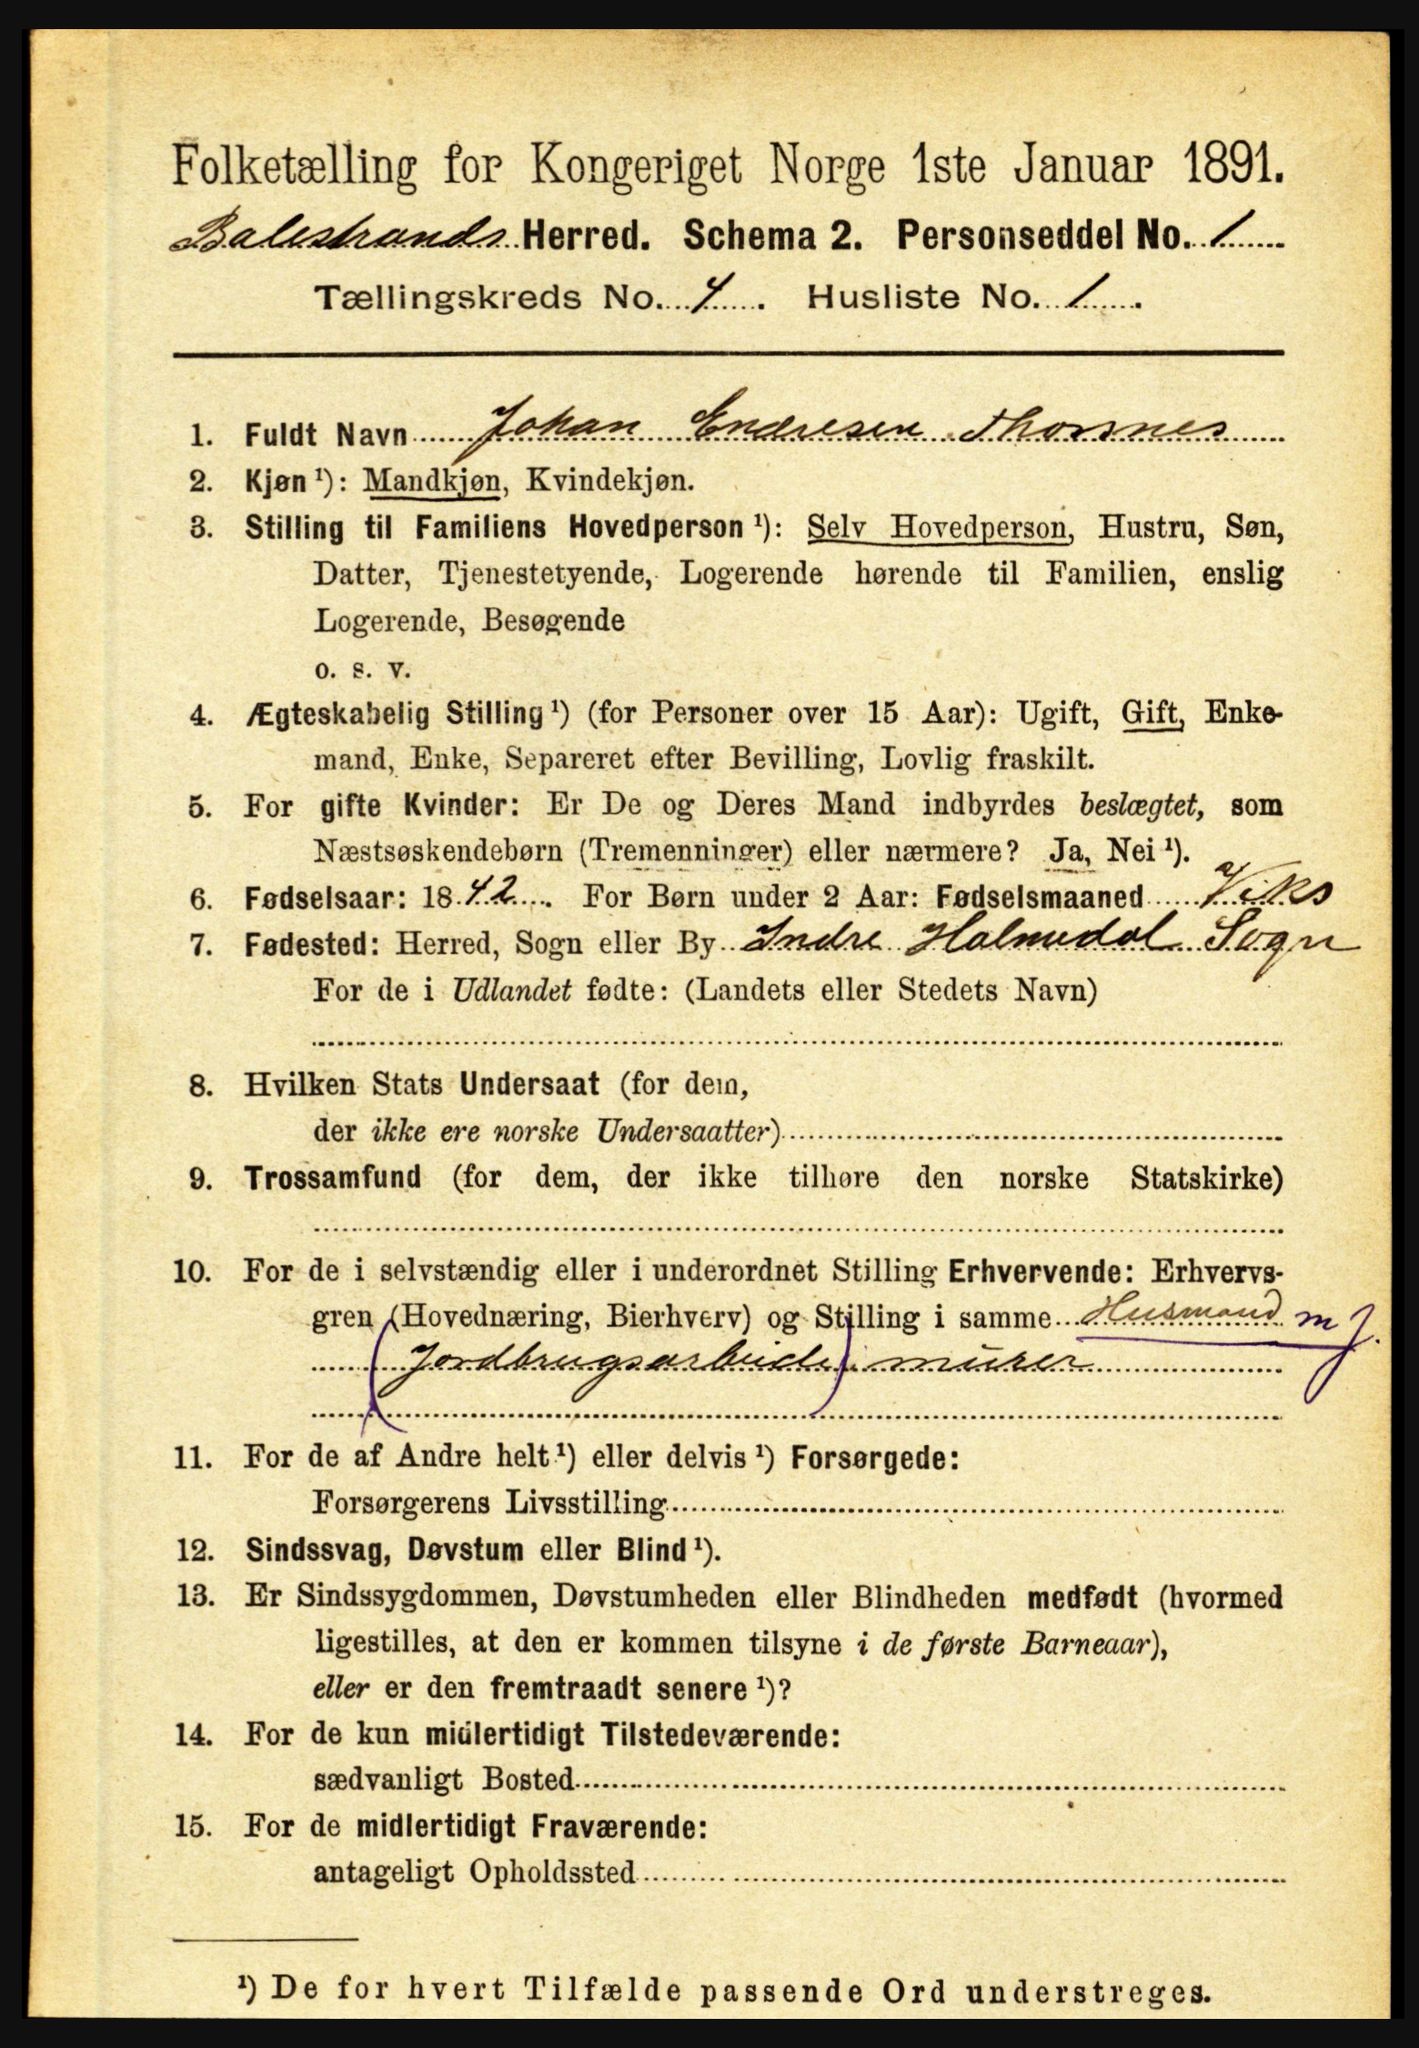 Folketælling for Kongeriget Norge 1ste Januar 1891.
Balestrands Herred. Schema 2. Personseddel No. 1
Tællingskreds No. 4. Husliste No. 1.
1. Fuldt Navn Johan Endresen Thorsnes
2. Kjøn ¹): Mandkjøn, Kvindekjøn.
3. Stilling til Familiens Hovedperson ¹): Selv Hovedperson, Hustru, Søn,
Datter, Tjenestetyende, Logerende hørende til Familien, enslig
Logerende, Besøgende
o. s. v.
4. Ægteskabelig Stilling ¹) (for Personer over 15 Aar): Ugift, Gift, Enke-
mand, Enke, Separeret efter Bevilling, Lovlig fraskilt.
5. For gifte Kvinder: Er De og Deres Mand indbyrdes beslægtet, som
Næstsøskendebørn (Tremenninger) eller nærmere? Ja, Nei ¹).
6. Fødselsaar: 1842. For Børn under 2 Aar: Fødselsmaaned Viks
7. Fødested: Herred, Sogn eller By Indre Holmedal Sogn
For de i Udlandet fødte: (Landets eller Stedets Navn)
8. Hvilken Stats Undersaat (for dem,
der ikke ere norske Undersaatter)
9. Trossamfund (for dem, der ikke tilhøre den norske Statskirke)
10. For de i selvstændig eller i underordnet Stilling Erhvervende: Erhvervs-
gren (Hovednæring, Bierhverv) og Stilling i samme Husmand m J.
(Jordbrugsarbeide) murer
11. For de af Andre helt ¹) eller delvis ¹) Forsørgede:
Forsørgerens Livsstilling
12. Sindssvag, Døvstum eller Blind ¹).
13. Er Sindssygdommen, Døvstumheden eller Blindheden medfødt (hvormed
ligestilles, at den er kommen tilsyne i de første Barneaar),
eller er den fremtraadt senere ¹)?
14. For de kun midlertidigt Tilstedeværende:
sædvanligt Bosted
15. For de midlertidigt Fraværende:
antageligt Opholdssted
¹) De for hvert Tilfælde passende Ord understreges.